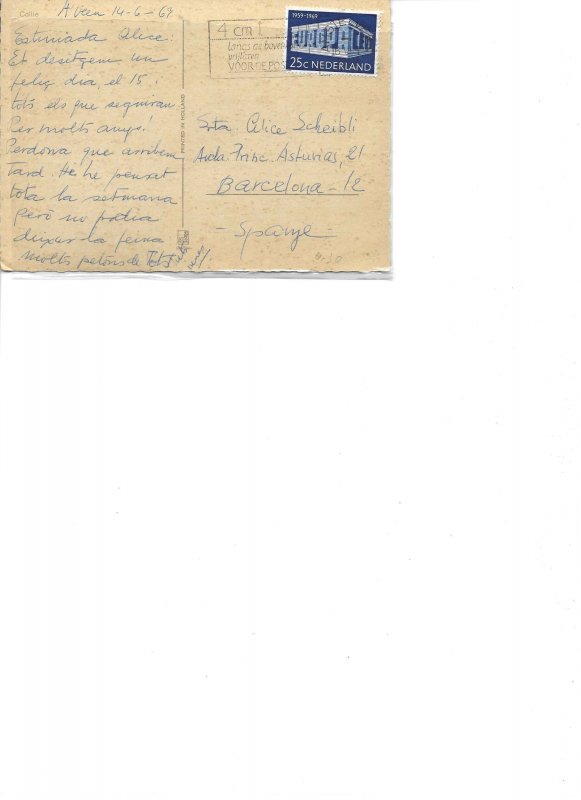 Collie
A Veen 14-6-69
Estimada Alice:
Et desitgem un
feliç dia, el 15 i
tots els que seguiran.
Per molts anys!
Perdona que arribem
tard. Hi he pensat
tota la setmana
però no podia
deixar la feina
molts petons de Tots
PRINTED IN HOLLAND
4 cm
langs de bovenrand
vrijlaten
VOOR DE POST
1959-1969
25c NEDERLAND
Srta Alice Scheibli
Avda. Princ. Asturias, 21
Barcelona - 12
- Spanje -